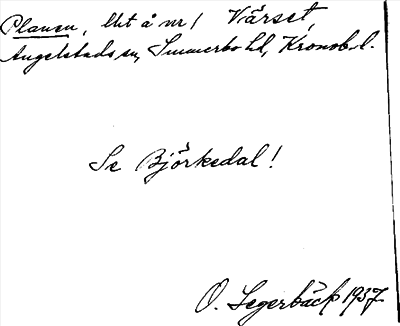 Plansen, lht å nr 1 Värset,
Angelstads sn, Sunnerbo hd, Kronob. l.
Se Björkedal!
O. Segerbäck 1937